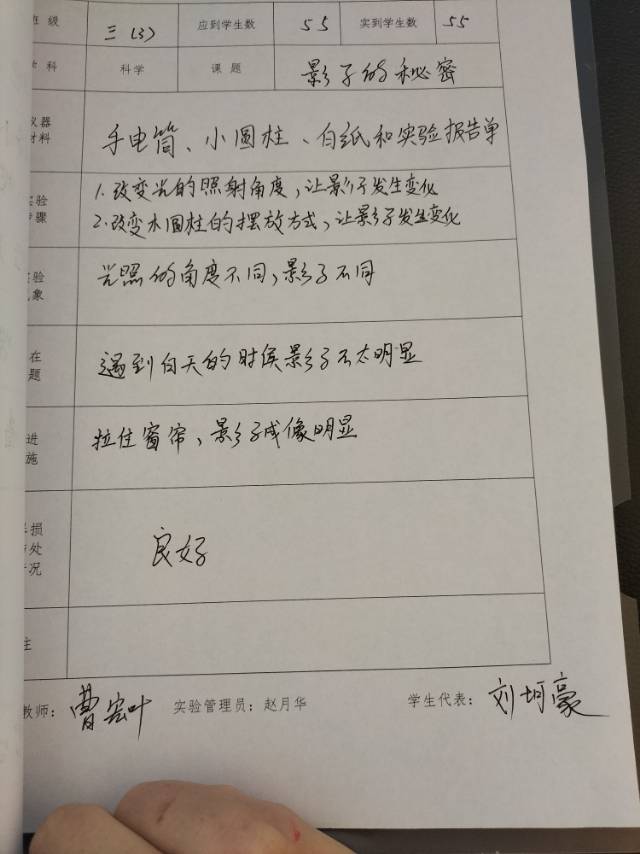 班 级 三（3） 应到学生数 55 实到学生数 55
学 科 科学 课 题 影子的秘密
仪器
材料
手电筒、小圆柱、白纸和实验报告单
实验
步骤
1.改变光的照射角度，让影子发生变化
2.改变木圆柱的摆放方式，让影子发生变化
实验
现象
光照的角度不同，影子不同
在
题
遇到白天的时侯影子不太明显
进
施
拉住窗帘，影子成像明显
损
处
况
良好
注
教师： 曹宏叶 实验管理员：赵月华 学生代表： 刘坷豪